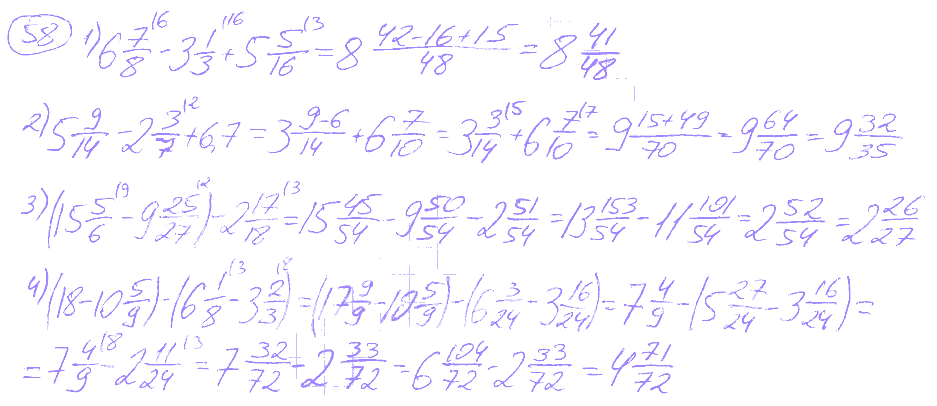 58 1) 6 7/8 |6 - 3 1/3 |16 + 5 5/16 |3 = 8 (42-16+15)/48 = 8 41/48
2) 5 9/14 - 2 3/7 |2 + 6,7 = 3 (9-6)/14 + 6 7/10 = 3 3/14 |5 + 6 7/10 |7 = 9 (15+49)/70 = 9 64/70 = 9 32/35
3) (15 5/6 |9 - 9 25/27 |2) - 2 17/18 |3 = 15 45/54 - 9 50/54 - 2 51/54 = 13 153/54 - 11 101/54 = 2 52/54 = 2 26/27
4) (18 - 10 5/9) - (6 1/8 |3 - 3 2/3 |8) = (17 9/9 - 10 5/9) - (6 3/24 - 3 16/24) = 7 4/9 - (5 27/24 - 3 16/24) =
= 7 4/9 |8 - 2 11/24 |3 = 7 32/72 - 2 33/72 = 6 104/72 - 2 33/72 = 4 71/72